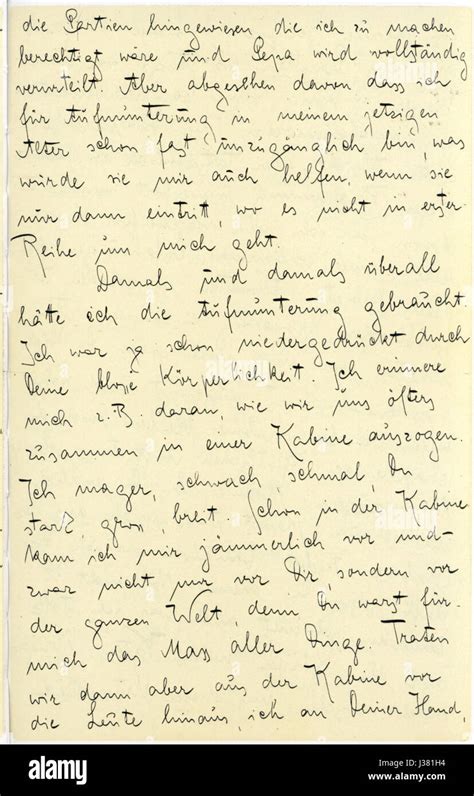 die Partien hingewiesen die ich zu machen
berechtigt wäre und Pepa wird vollständig
verurteilt. Aber abgesehen davon dass ich
für Aufmunterung in meinem jetzigen
Alter schon fast unzugänglich bin, was
würde sie mir auch helfen, wenn sie
nur dann eintritt, wo es nicht in erster
Reihe um mich geht.
Damals und damals überall
hätte ich die Aufmunterung gebraucht.
Ich war ja schon niedergedrückt durch
Deine blosse Körperlichkeit. Ich erinnere
mich z.B. daran, wie wir uns öfters
zusammen in einer Kabine auszogen.
Ich mager, schwach, schmal, Du
stark, gross, breit. Schon in der Kabine
kam ich mir jämmerlich vor und
zwar nicht nur vor Dir, sondern vor
der ganzen Welt, denn Du warst für
mich das Mass aller Dinge. Traten
wir dann aber aus der Kabine vor
die Leute hinaus, ich an Deiner Hand,
alamy
alamy
alamy
alamy stock photo
J381H4